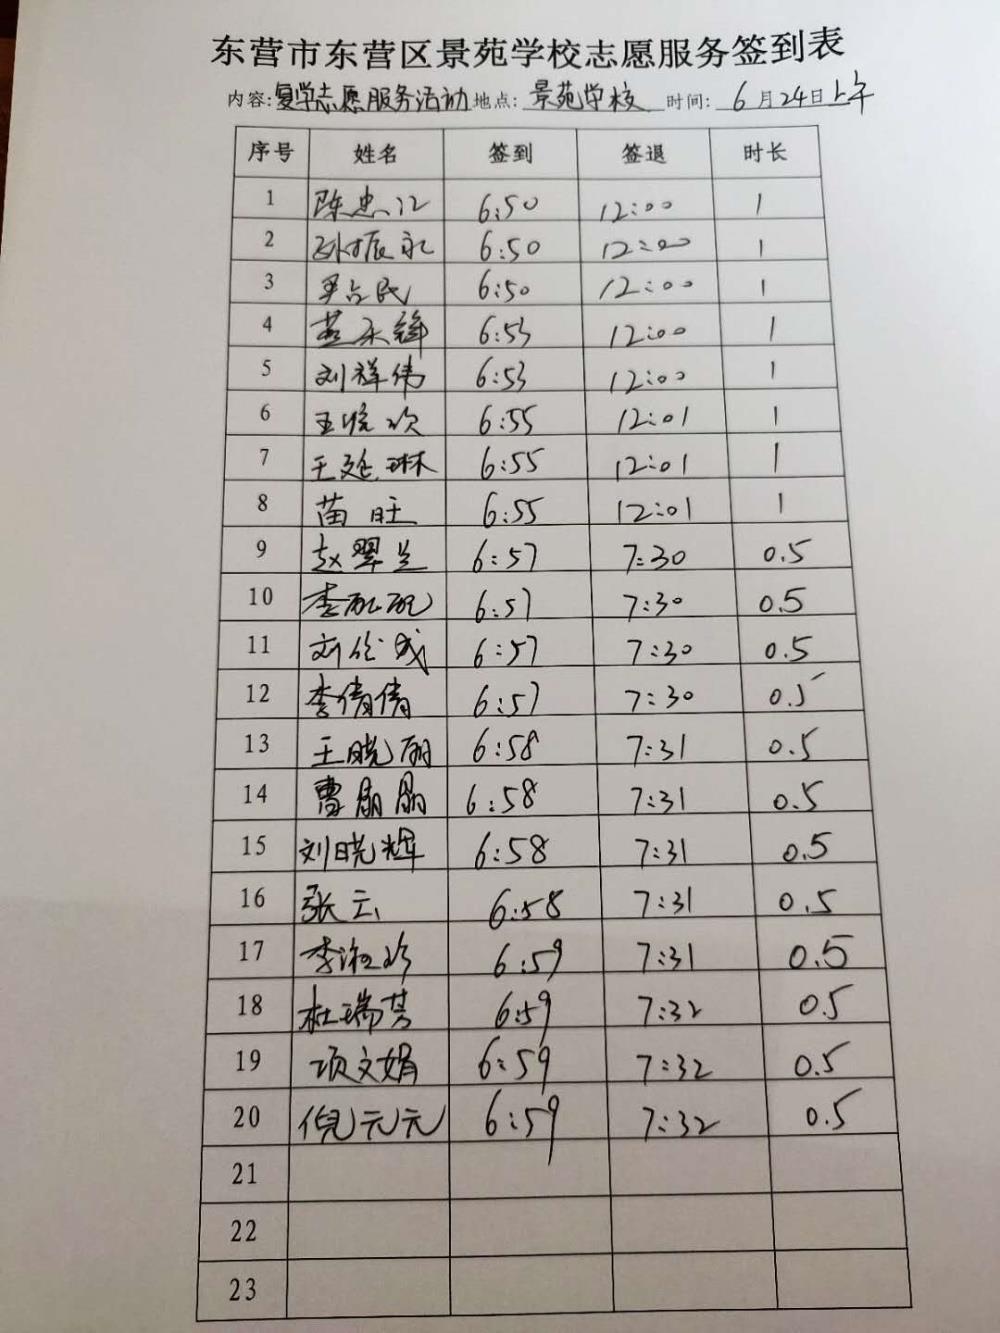 东营市东营区景苑学校志愿服务签到表
内容:复学志愿服务活动 地点:景苑学校 时间:6月24日上午
序号 姓名 签到 签退 时长
1 陈忠江 6:50 12:00 1
2 孙振永 6:50 12:00 1
3 占民 6:50 12:00 1
4 永锋 6:53 12:00 1
5 刘祥伟 6:53 12:00 1
6 王 欢 6:55 12:01 1
7 王延琳 6:55 12:01 1
8 苗旺 6:55 12:01 1
9 赵翠兰 6:57 7:30 0.5
10 李 6:57 7:30 0.5
11 刘 成 6:57 7:30 0.5
12 李倩倩 6:57 7:30 0.5
13 王晓丽 6:58 7:31 0.5
14 曹晶晶 6:58 7:31 0.5
15 刘晓辉 6:58 7:31 0.5
16 张云 6:58 7:31 0.5
17 李淑珍 6:59 7:31 0.5
18 杜瑞芳 6:59 7:32 0.5
19 项文娟 6:59 7:32 0.5
20 倪元元 6:59 7:32 0.5
21
22
23